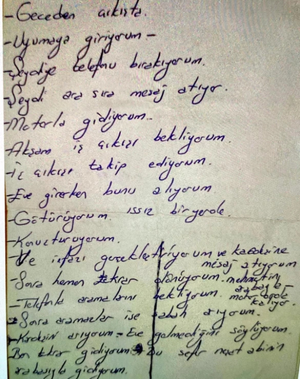 - Geceden çıkışta.
- Uyumaya giriyorum -
- Şeydiye telefonu bırakıyorum.
- Şeydi ara sıra mesaj atıyor.
- Motorla gidiyorum.
- Akşam iş çıkışı bekliyorum.
- İş çıkışı takip ediyorum.
- Eve girerken bunu alıyorum
- Götürüyorum. ıssız bir yerde.
- Konuşturuyorum.
- Ve infazı gerçekleştiriyorum ve
mesaj atıyorum
- Sonra hemen tekrar dönüyorum.
- Telefonla aramaları bekliyorum.
- Sonra aramalar ise sabah arıyorum.
arıyorum - Eve gelmediğini söylüyorum.
Ben tekrar gidiyorum. Bu sefer abinin
arabasıyla gidiyorum.